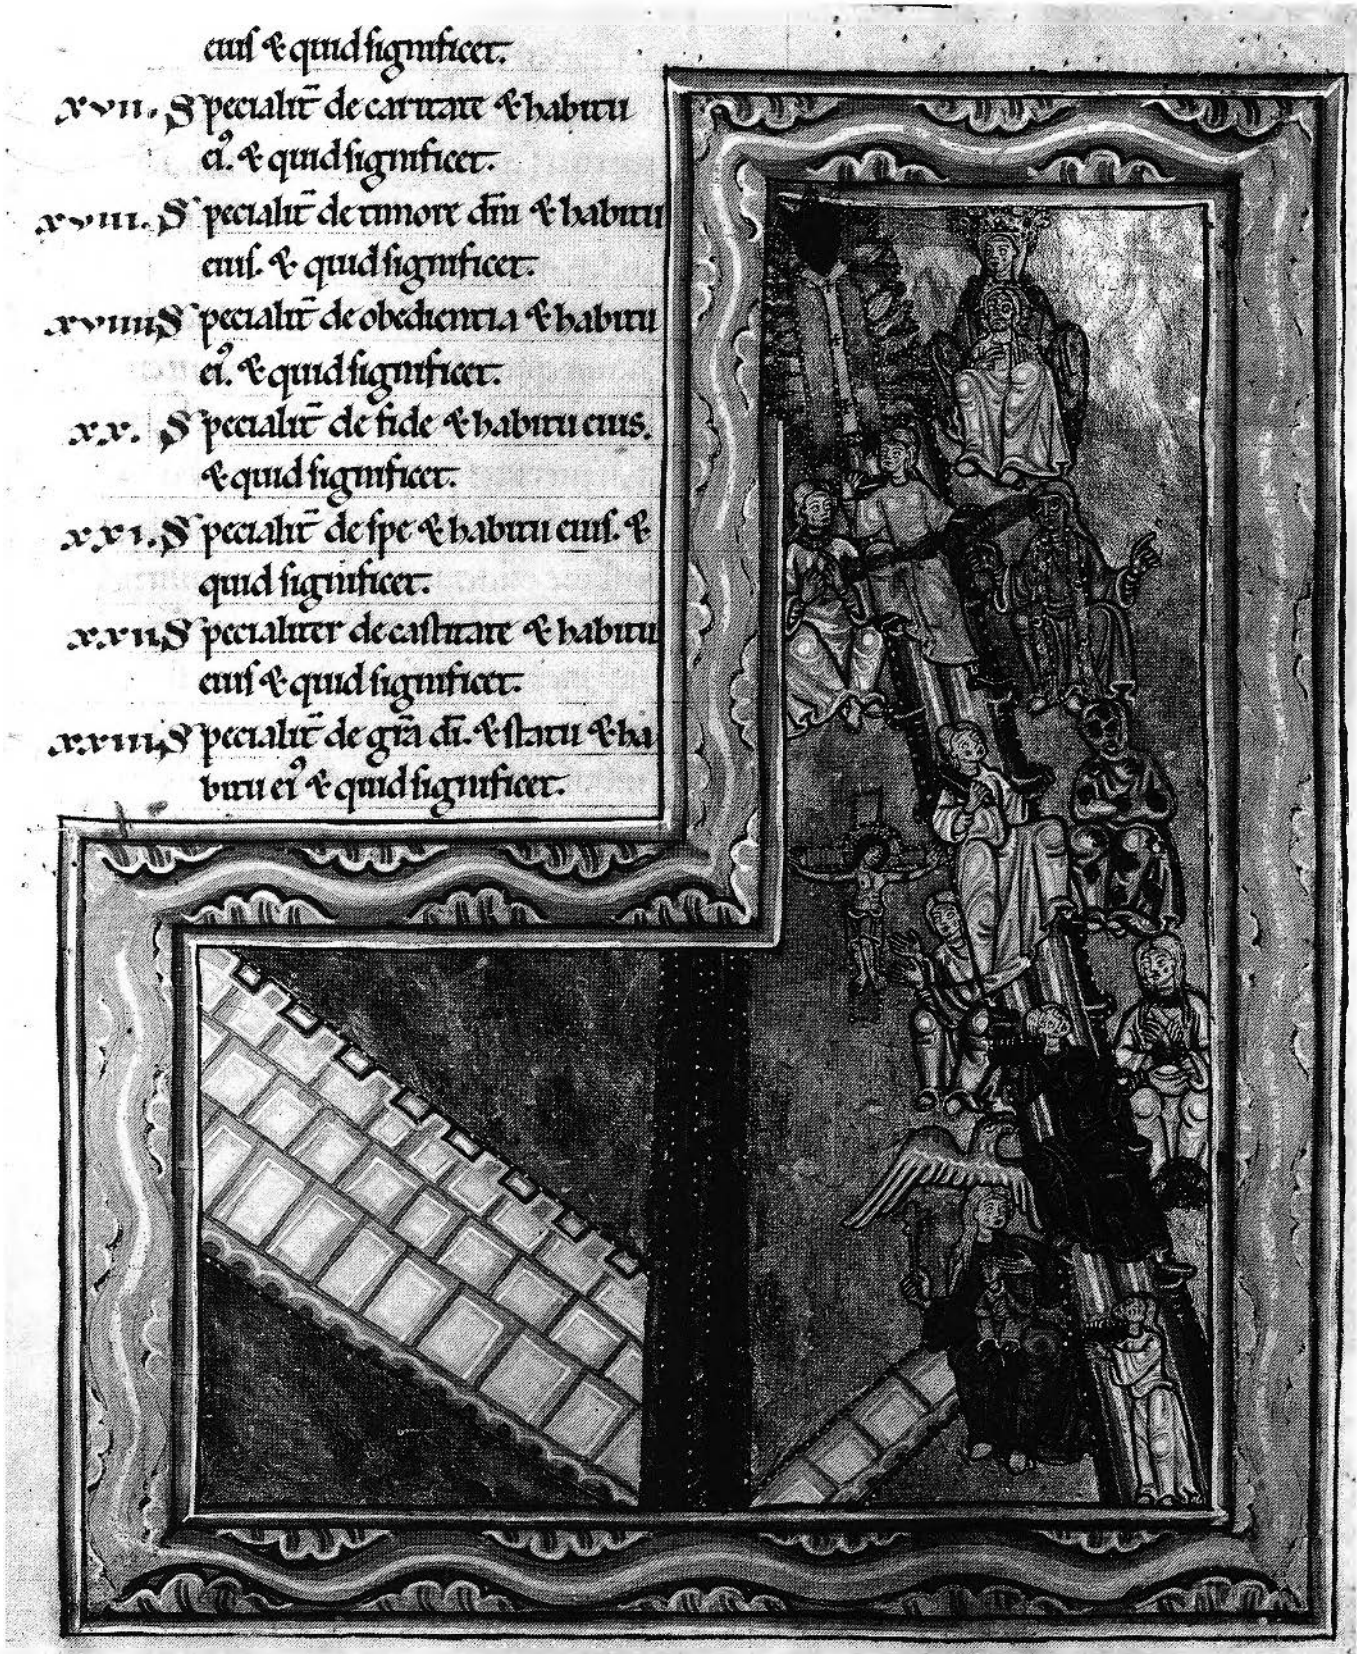 eius & quid significet.
xvii. Specialit̄ de caritate & habitu
ei᾽. & quid significet.
xviii. Specialit̄ de timore dn̄i & habitu
eius. & quid significet.
xviiii Specialit̄ de obedientia & habitu
ei᾽. & quid significet.
xx. Specialit̄ de fide & habitu eius.
& quid significet.
xxi. Specialit̄ de spe & habitu eius. &
quid significet.
xxii Specialiter de castitate & habitu
eius & quid significet.
xxiii Specialit̄ de gr̄a dī. & statu & ha
bitu ei᾽ & quid significet.